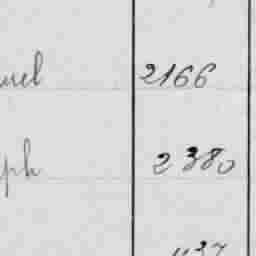 uel 2166
ph 2380